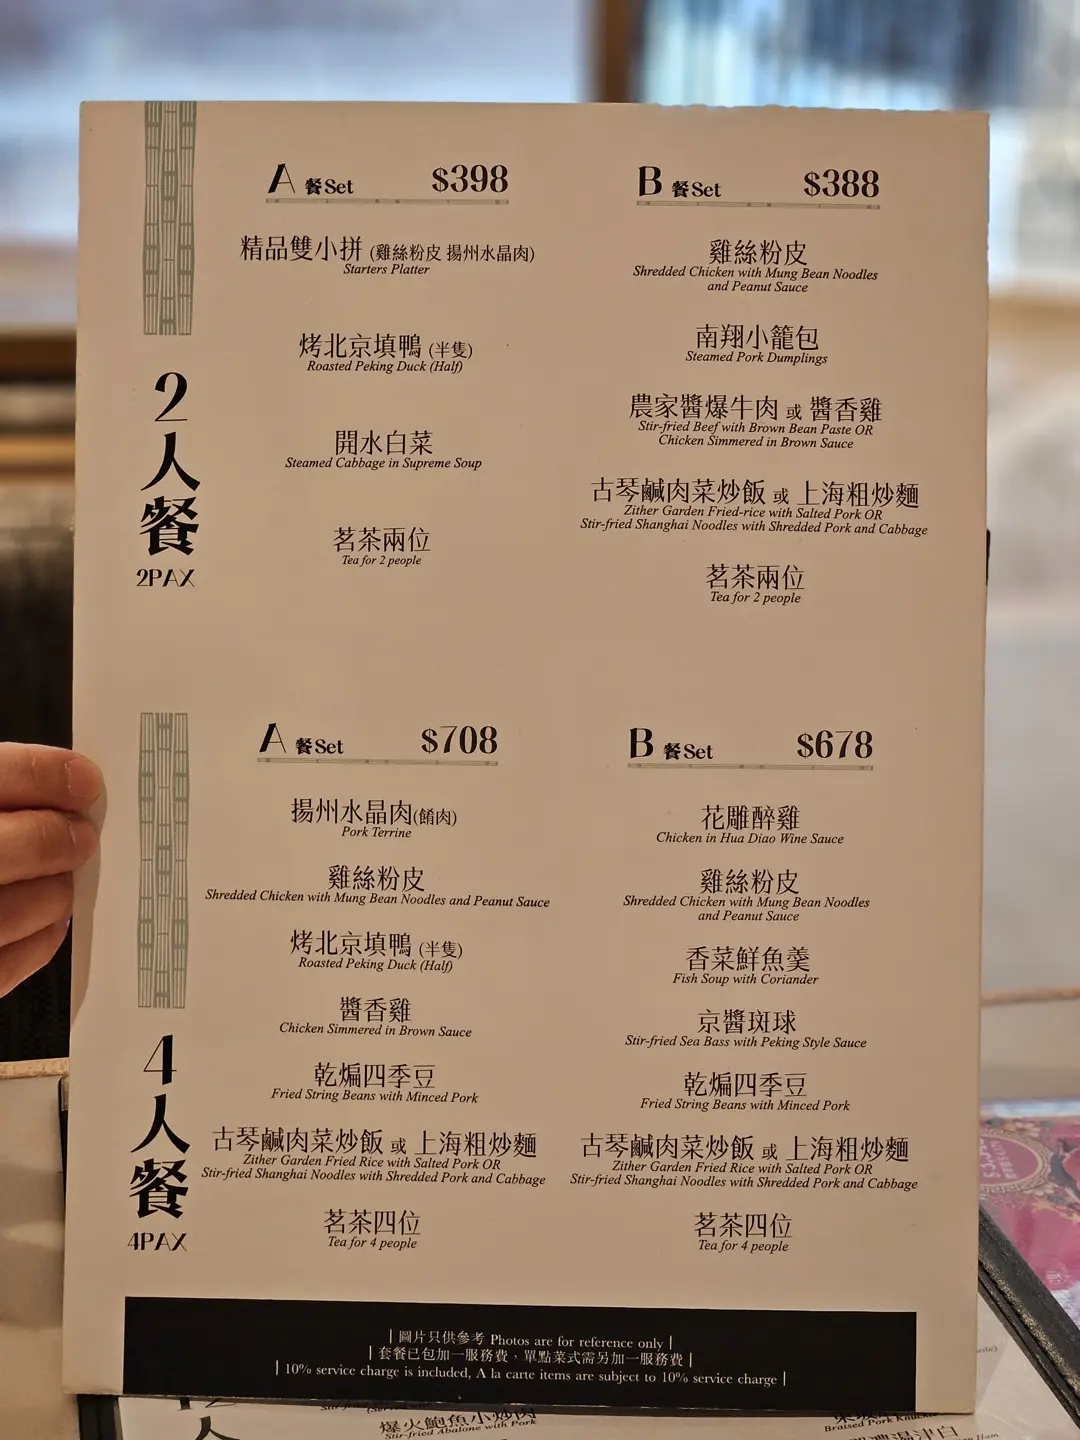 2
人
餐
2PAX
A 餐Set $398
精品雙小拼 (雞絲粉皮 揚州水晶肉)
Starters Platter
烤北京填鴨 (半隻)
Roasted Peking Duck (Half)
開水白菜
Steamed Cabbage in Supreme Soup
茗茶兩位
Tea for 2 people
B 餐Set $388
雞絲粉皮
Shredded Chicken with Mung Bean Noodles
and Peanut Sauce
南翔小籠包
Steamed Pork Dumplings
農家醬爆牛肉 或 醬香雞
Stir-fried Beef with Brown Bean Paste OR
Chicken Simmered in Brown Sauce
古琴鹹肉菜炒飯 或 上海粗炒麵
Zither Garden Fried-rice with Salted Pork OR
Stir-fried Shanghai Noodles with Shredded Pork and Cabbage
茗茶兩位
Tea for 2 people
4
人
餐
4PAX
A 餐Set $708
揚州水晶肉(餚肉)
Pork Terrine
雞絲粉皮
Shredded Chicken with Mung Bean Noodles and Peanut Sauce
烤北京填鴨 (半隻)
Roasted Peking Duck (Half)
醬香雞
Chicken Simmered in Brown Sauce
乾煸四季豆
Fried String Beans with Minced Pork
古琴鹹肉菜炒飯 或 上海粗炒麵
Zither Garden Fried Rice with Salted Pork OR
Stir-fried Shanghai Noodles with Shredded Pork and Cabbage
茗茶四位
Tea for 4 people
B 餐Set $678
花雕醉雞
Chicken in Hua Diao Wine Sauce
雞絲粉皮
Shredded Chicken with Mung Bean Noodles
and Peanut Sauce
香菜鮮魚羹
Fish Soup with Coriander
京醬斑球
Stir-fried Sea Bass with Peking Style Sauce
乾煸四季豆
Fried String Beans with Minced Pork
古琴鹹肉菜炒飯 或 上海粗炒麵
Zither Garden Fried Rice with Salted Pork OR
Stir-fried Shanghai Noodles with Shredded Pork and Cabbage
茗茶四位
Tea for 4 people
| 圖片只供參考 Photos are for reference only |
| 套餐已包加一服務費，單點菜式需另加一服務費 |
| 10% service charge is included, A la carte items are subject to 10% service charge |
爆火鮑魚小炒肉
Stir-fried Abalone with Pork
Braised Pork Knuckle